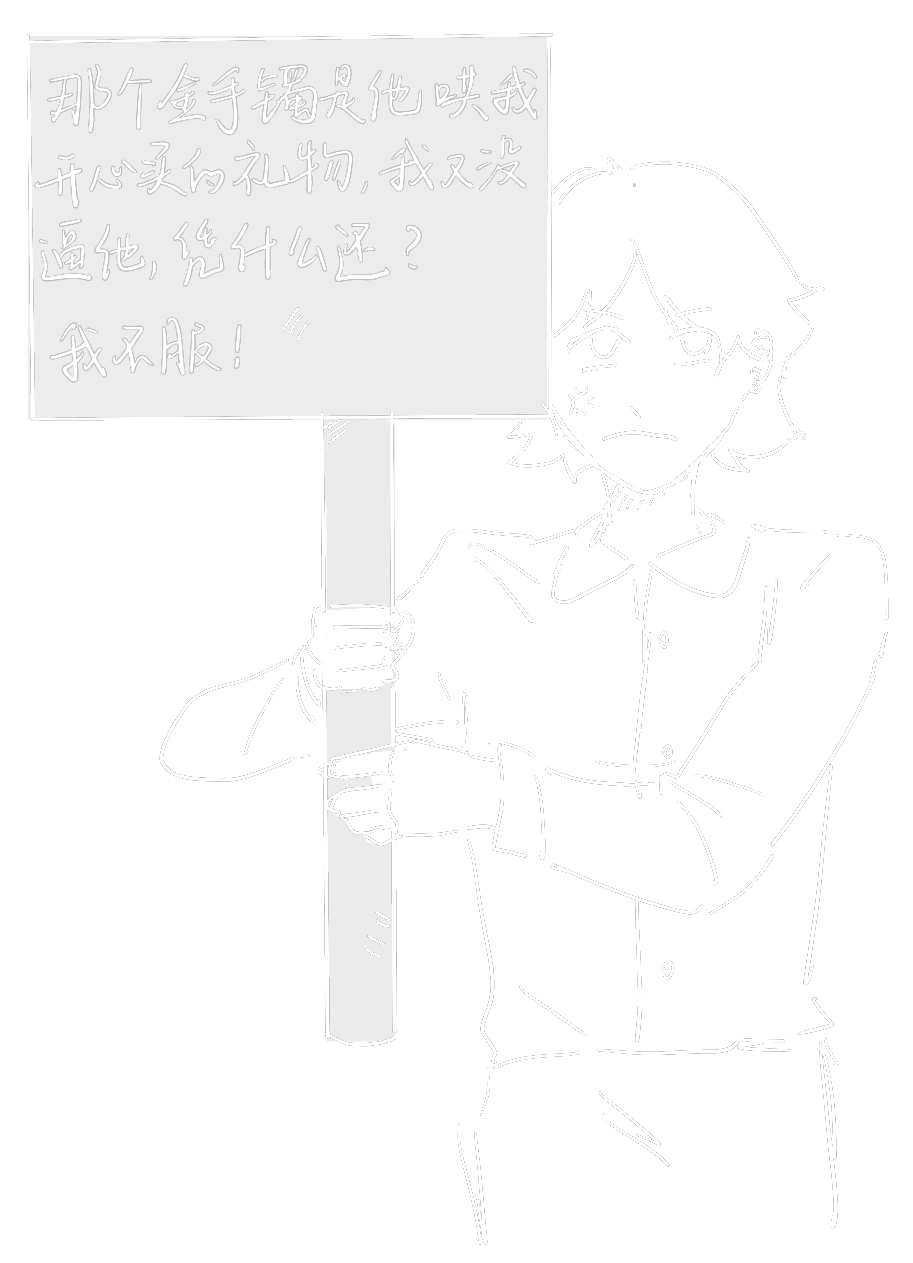 那个金手镯是他哄我
开心买的礼物,我又没
逼他,凭什么还?
我不服!